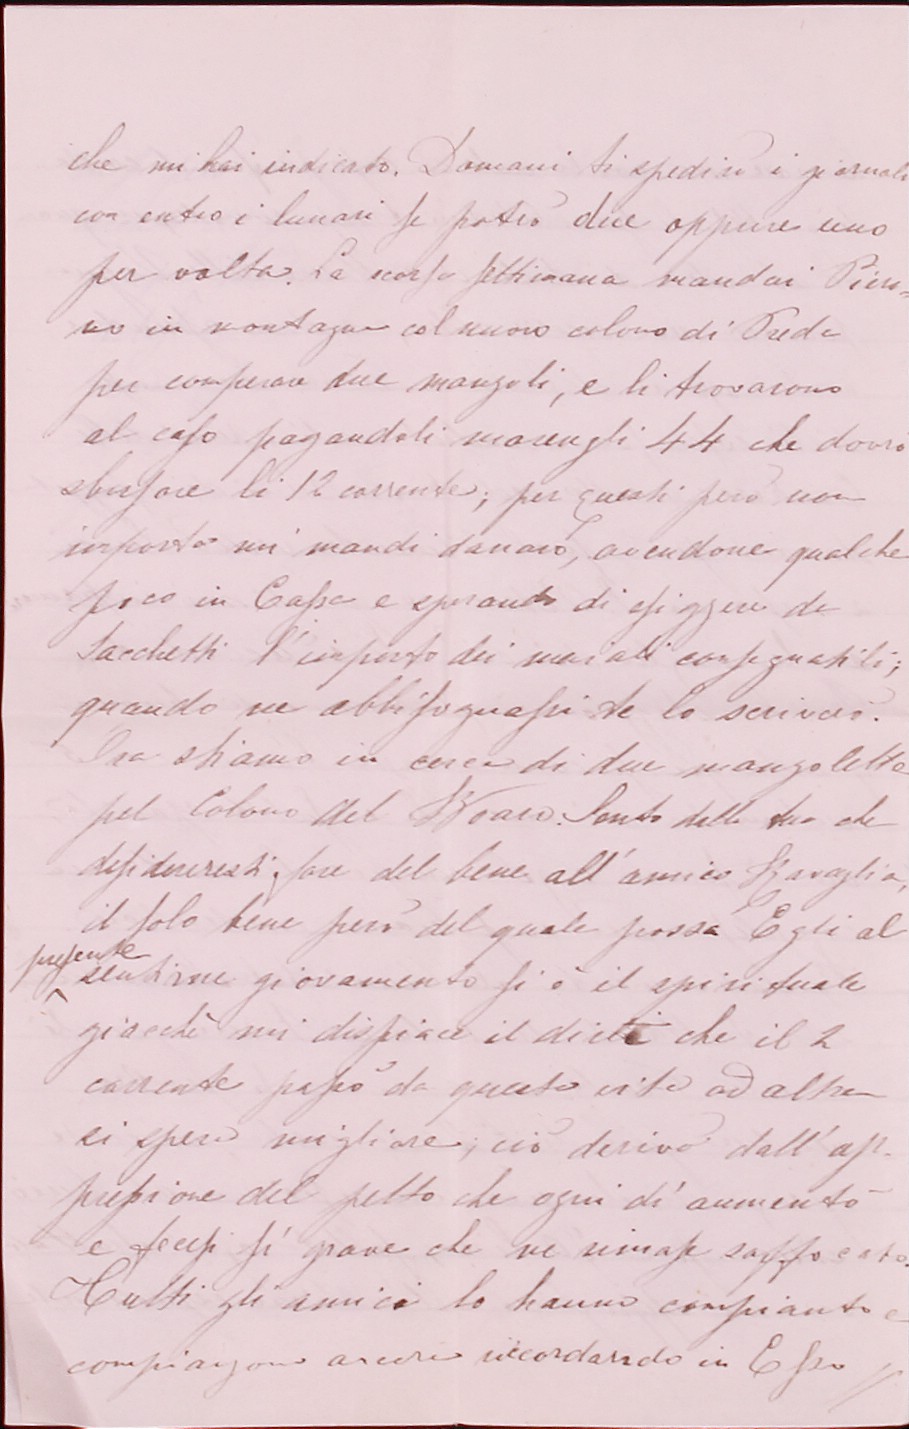 che mi hai indicato. Domani ti spedirò i giornali
con entro i lunari se potrò due oppure uno
per volta. La scorsa settimana mandai Pieri-
no in montagna col nuovo colono di Preda
per comperare due manzoli, e li trovarono
al caso pagandoli marenghi 44 che dovrò
sborsare li 12 corrente; per questi però non
importa mi mandi danaro, avendone qualche
poco in Cassa e sperando di esiggere da
Sacchetti l'importo dei maiali consegnatili;
quando ne abbisognassi te lo scriverò.
Ora stiamo in cerca di due manzolette
pel Colono del. Sento dalla tua che
desidereresti fare del bene all'amico Savaglia,
il solo bene però del quale possa Egli al
presente
sentirne giovamento si è il spirituale
giacchè mi dispiace il dirti che il 2
corrente passò da questa vita ad altra
si spera migliore; ciò derivò dall'op-
pressione del petto che ogni dì aumentò
e fecesi sì grave che ne rimase soffocato.
Tutti gli amici lo hanno compianto e
compiangono ancora riccordando in Esso